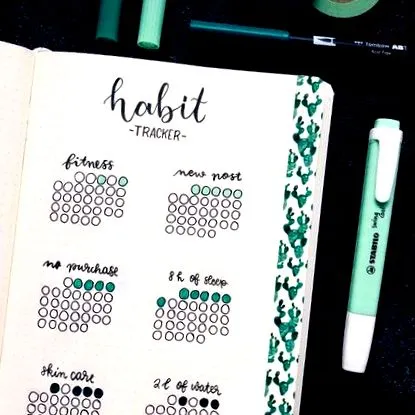 habit
-TRACKER-
fitness
new post
no purchase
8 h of sleep
skin care
2 l of water
STABILO
swing cool
Tombow